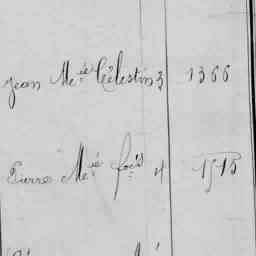 Jean Me.ie Célestin 3 1366
Pierre Me.ie fois 4 1515